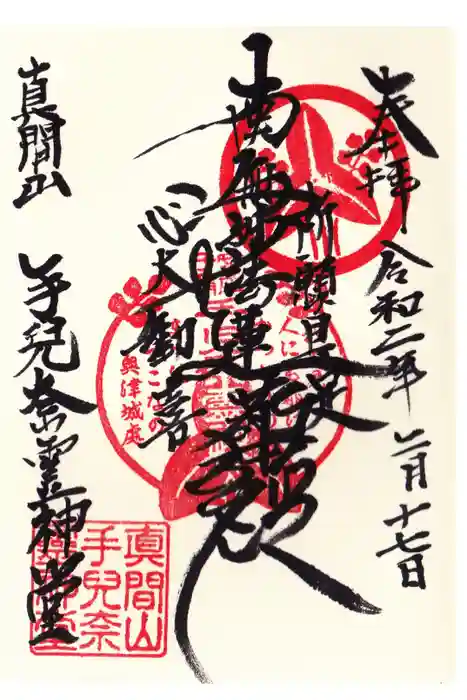 奉拝 令和二年 二月十七日
所願具足
南無妙法蓮華経
心大歓喜
真間山 手兒奈霊神堂
人に
こなの
奥津城處
真間山
手兒奈